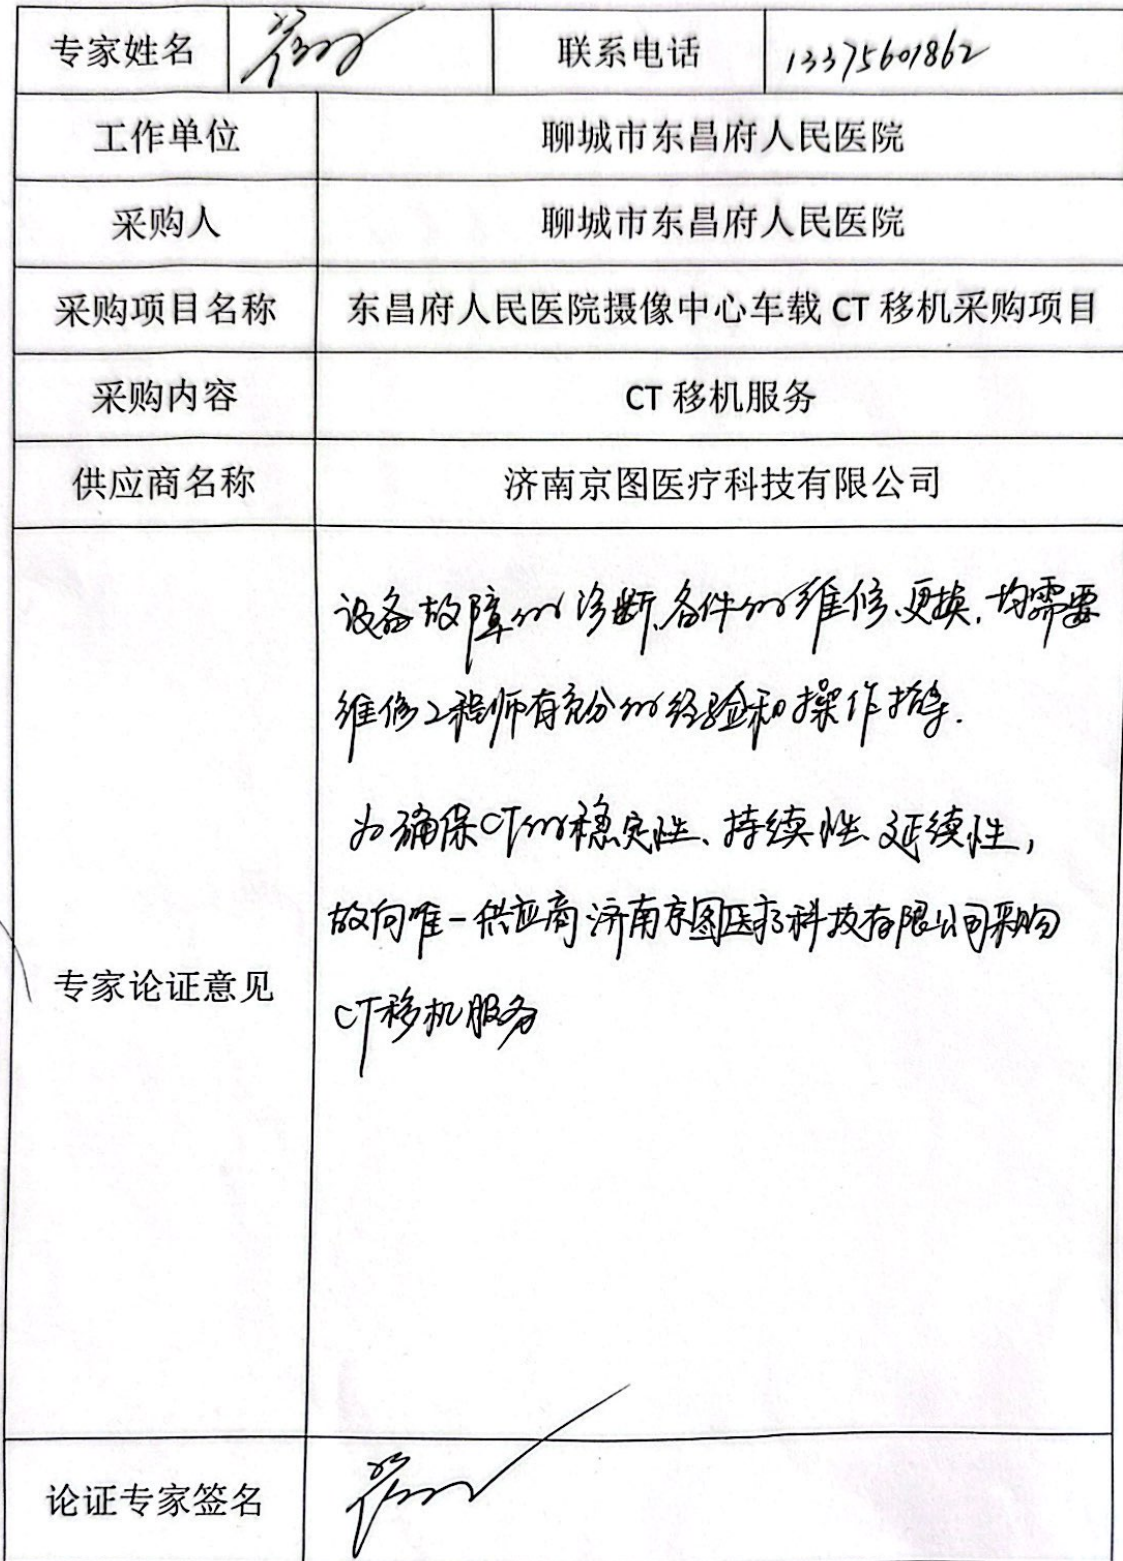 专家姓名 联系电话 13375601862
工作单位 聊城市东昌府人民医院
采购人 聊城市东昌府人民医院
采购项目名称 东昌府人民医院摄像中心车载 CT 移机采购项目
采购内容 CT 移机服务
供应商名称 济南京图医疗科技有限公司
专家论证意见
设备故障的诊断、备件的维修、更换,均需要
维修工程师有充分的经验和操作指导.
为确保CT的稳定性、持续性、延续性,
故向唯一供应商济南京图医疗科技有限公司采购
CT移机服务
论证专家签名